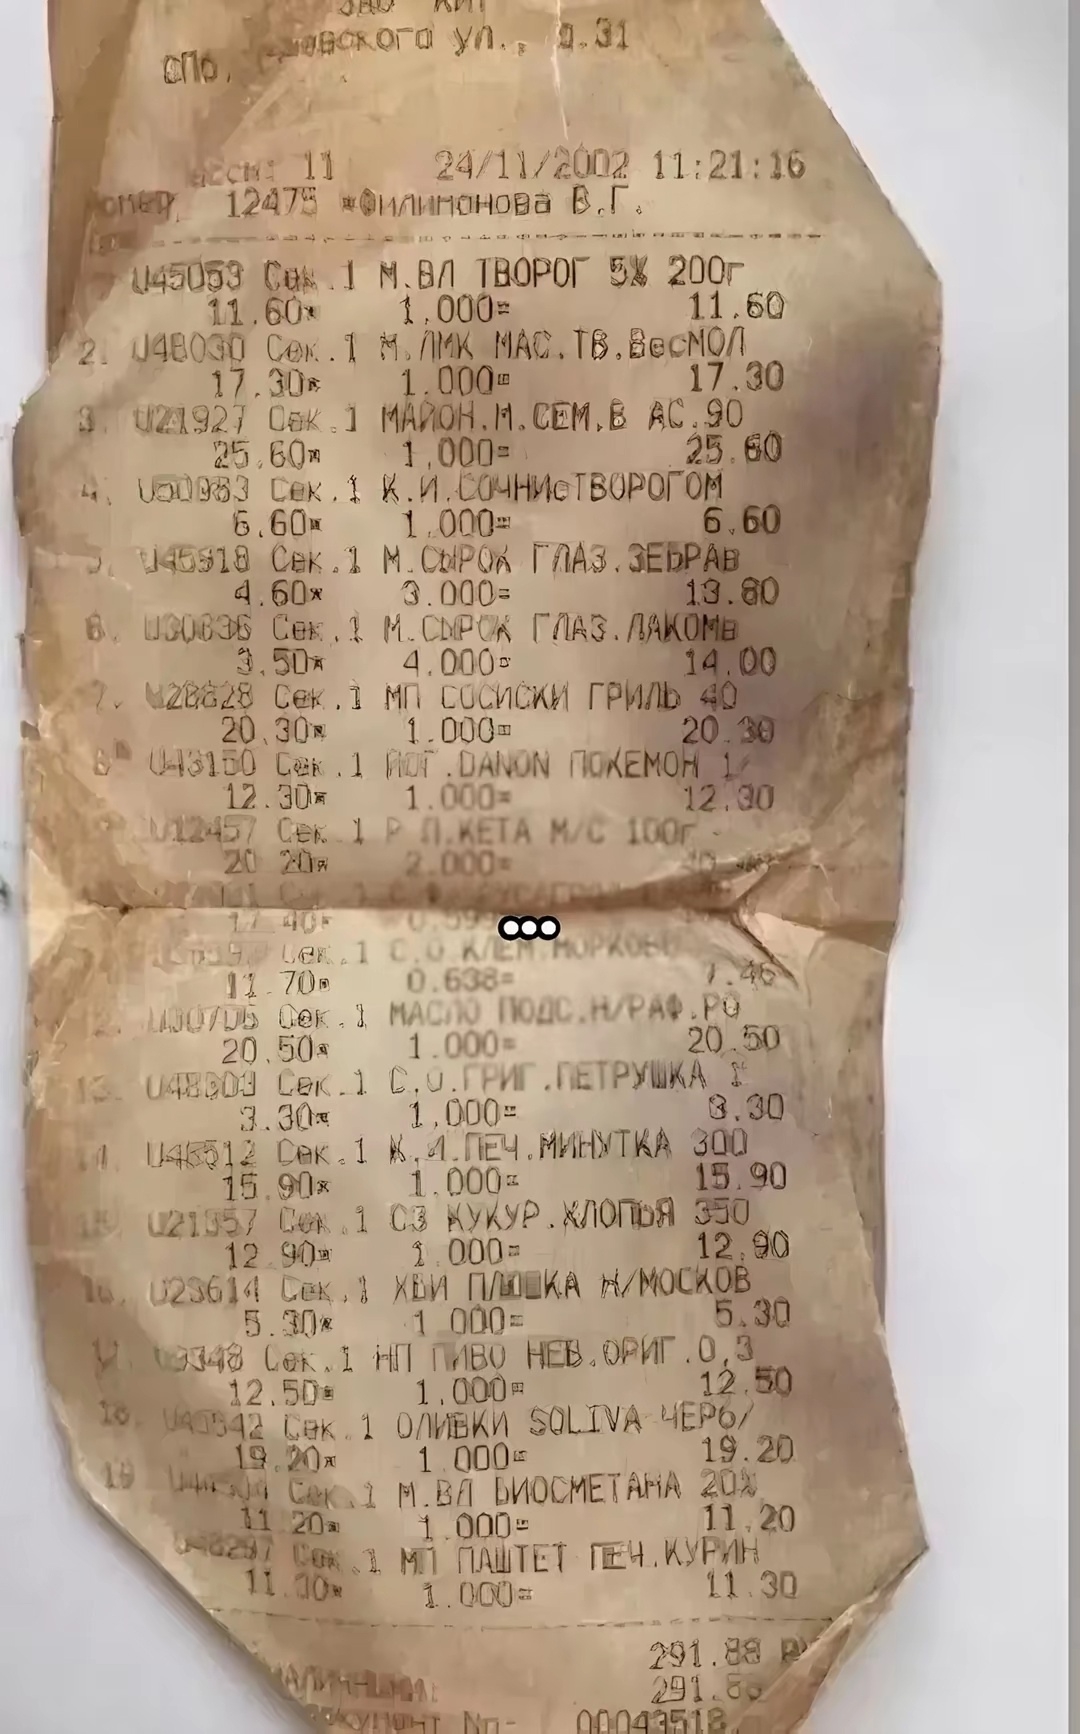 ЗАО КИТ
СПб, ул., д.31
11 24/11/2002 11:21:16
12475 *Филимонова В.Г.
U45053 Сек.1 М.ВЛ ТВОРОГ 5% 200г
11.60* 1.000= 11.60
2. U48030 Сек.1 М.ЛМК МАС.ТВ.ВесМОЛ
17.30* 1.000= 17.30
3. U21927 Сек.1 МАЙОН.М.СЕМ.В АС.90
25.60* 1.000= 25.60
4. Сек.1 К.И.СОЧНИсТВОРОГОМ
6.60* 1.000= 6.60
5. U45918 Сек.1 М.СЫРОК ГЛАЗ.ЗЕБРАв
4.60* 3.000= 13.80
6. U30836 Сек.1 М.СЫРОК ГЛАЗ.ЛАКОМв
3.50* 4.000= 14.00
7. U28828 Сек.1 МП СОСИСКИ ГРИЛЬ 40
20.30* 1.000= 20.30
8. U43150 Сек.1 ЙОГ.DANON ПОКЕМОН 1
12.30* 1.000= 12.30
U12457 Сек.1 Р П.КЕТА М/С 100г
20.20* 2.000= 40
17.40*
Сек.1 С.О КЛЕМ.МОРКОВЬ
11.70* 0.638= 7.46
12. Сек.1 МАСЛО ПОДС.Н/РАФ.РО
20.50* 1.000= 20.50
13. U48303 Сек.1 С.О.ГРИГ.ПЕТРУШКА 1
3.30* 1.000= 3.30
14. Сек.1 К.И.ПЕЧ.МИНУТКА 300
15.90* 1.000= 15.90
15. U21357 Сек.1 СЗ КУКУР.ХЛОПЬЯ 350
12.90* 1.000= 12.90
16. U23614 Сек.1 ХБИ ПЛЮШКА Н/МОСКОВ
5.30* 1.000= 5.30
Сек.1 НП ПИВО НЕВ.ОРИГ.0,3
12.50* 1.000= 12.50
18. Сек.1 ОЛИВКИ SOLIVA ЧЕРб/
19.20* 1.000= 19.20
19 Сек.1 М.ВЛ БИОСМЕТАНА 20%
11.20* 1.000= 11.20
U48297 Сек.1 МП ПАШТЕТ ПЕЧ.КУРИН
11.30* 1.000= 11.30
291.88
291.88
00043518